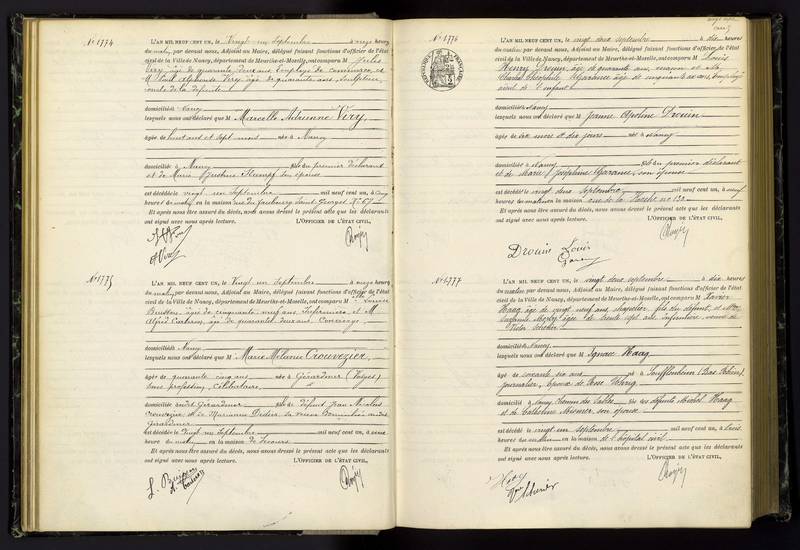 No 1774
L'AN MIL NEUF CENT UN, le Vingt un Septembre à onze heures
du matin, par devant nous, Adjoint au Maire, délégué faisant fonctions d'officier de l'état
civil de la Ville de Nancy, département de Meurthe-et-Moselle, ont comparu M Jules
Viry, âgé de quarante deux ans, employé de commerce, et
M. Paul Alphonse âgé de quarante ans,
oncle de la défunte
domiciliés à Nancy
lesquels nous ont déclaré que M Marcelle Adrienne Viry,
âgée de huit ans et sept mois née à Nancy
domiciliée à Nancy fille du premier déclarant
et de Marie Justine son épouse
est décédée le vingt un Septembre mil neuf cent un, à
heures du matin, en la maison rue du faubourg Saint Georges No 67
Et après nous être assuré du décès, nous avons dressé le présent acte que les déclarants
ont signé avec nous après lecture. L'OFFICIER DE L'ÉTAT CIVIL,
No 1775
L'AN MIL NEUF CENT UN, le Vingt un Septembre à onze heures
du matin, par devant nous, Adjoint au Maire, délégué faisant fonctions d'officier de l'état
civil de la Ville de Nancy, département de Meurthe-et-Moselle, ont comparu M Louise
Buisson, âgée de cinquante neuf ans, Infirmière, et M.
Alfred âgé de quarante deux ans, Concierge
domiciliés à Nancy
lesquels nous ont déclaré que M Marie Mélanie Crouvezier,
âgée de quarante cinq ans née à Gérardmer (Vosges)
sans profession, célibataire,
domiciliée à Gérardmer fille de défunt Jean Nicolas
Crouvezier et de Marianne Didier, sa veuve domiciliée à
Gérardmer
est décédée le Vingt un Septembre mil neuf cent un, à onze
heures du matin, en la maison de Secours
Et après nous être assuré du décès, nous avons dressé le présent acte que les déclarants
ont signé avec nous après lecture. L'OFFICIER DE L'ÉTAT CIVIL,
L. Buisson
No 1776
L'AN MIL NEUF CENT UN, le vingt deux septembre à dix heures
du matin, par devant nous, Adjoint au Maire, délégué faisant fonctions d'officier de l'état
civil de la Ville de Nancy, département de Meurthe-et-Moselle, ont comparu M Louis
Henry Drouin, âgé de quarante ans, et M.
Charles Théophile âgé de cinquante ans, employé
de l'enfant
domiciliés à Nancy
lesquels nous ont déclaré que M Jeanne Drouin
âgée de dix mois et dix jours née à Nancy
domiciliée à Nancy fille du premier déclarant
et de Marie Joséphine son épouse
est décédée le vingt deux Septembre mil neuf cent un, à neuf
heures du matin en la maison rue de la no 130
Et après nous être assuré du décès, nous avons dressé le présent acte que les déclarants
ont signé avec nous après lecture. L'OFFICIER DE L'ÉTAT CIVIL,
Drouin Louis
No 1777
L'AN MIL NEUF CENT UN, le vingt deux septembre à dix heures
du matin, par devant nous, Adjoint au Maire, délégué faisant fonctions d'officier de l'état
civil de la Ville de Nancy, département de Meurthe-et-Moselle, ont comparu M Xavier
Haag âgé de vingt neuf ans, fils du défunt, et Mme
âgée de trente sept ans, infirmière, veuve de
Victor
domiciliés à Nancy
lesquels nous ont déclaré que M Ignace Haag
âgé de soixante six ans né à Soufflenheim (Bas Rhin),
journalier, époux de Rose
domicilié à Nancy fils des défunts Michel Haag
et de Catherine son épouse
est décédé le vingt un Septembre mil neuf cent un, à
heures du en la maison de l'hôpital civil
Et après nous être assuré du décès, nous avons dressé le présent acte que les déclarants
ont signé avec nous après lecture. L'OFFICIER DE L'ÉTAT CIVIL,
Haag